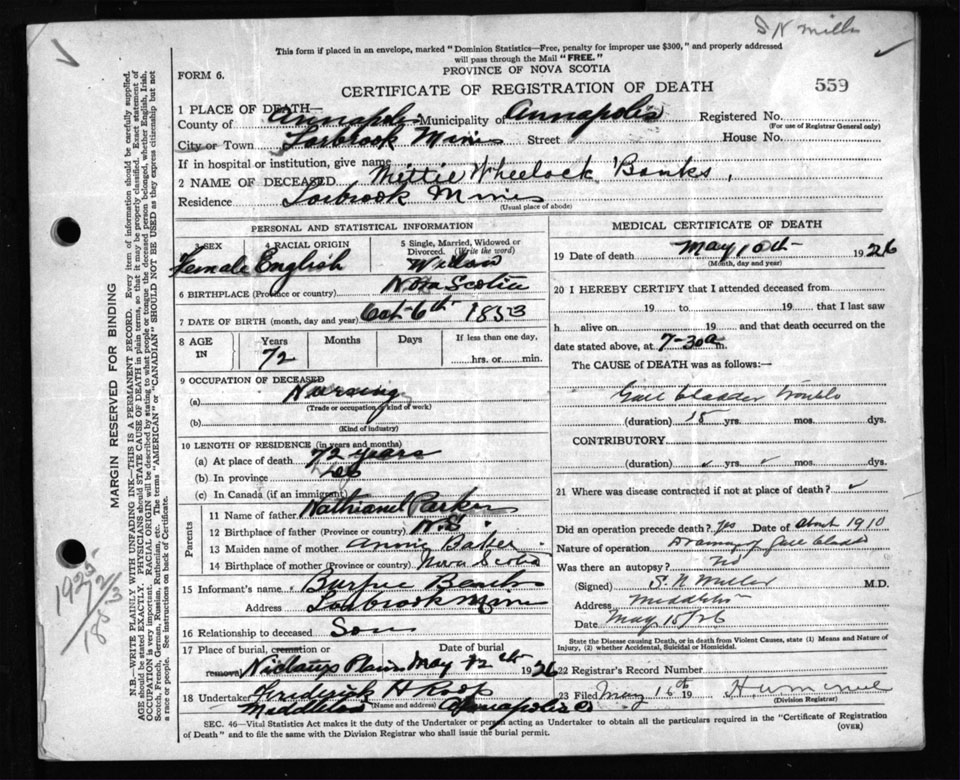 S N Mills
This form if placed in an envelope, marked "Dominion Statistics—Free, penalty for improper use $300," and properly addressed
will pass through the Mail "FREE."
FORM 6.
PROVINCE OF NOVA SCOTIA
CERTIFICATE OF REGISTRATION OF DEATH
559
1 PLACE OF DEATH—
County of Annapolis Municipality of Annapolis Registered No.
(For use of Registrar General only)
City or Town Torbrook Mines Street House No.
If in hospital or institution, give name
2 NAME OF DECEASED Mettie Wheelock Banks,
Residence Torbrook Mines
(Usual place of abode)
PERSONAL AND STATISTICAL INFORMATION
3 SEX 4 RACIAL ORIGIN 5 Single, Married, Widowed or
Divorced. (Write the word)
Female English Widow
6 BIRTHPLACE (Province or country) Nova Scotia
7 DATE OF BIRTH (month, day and year) Oct 6th 1853
8 AGE IN Years Months Days If less than one day,
72 hrs. or min.
9 OCCUPATION OF DECEASED
(a) Nursing
(Trade or occupation or kind of work)
(b)
(Kind of industry)
10 LENGTH OF RESIDENCE (in years and months)
(a) At place of death 72 years
(b) In province
(c) In Canada (if an immigrant)
Parents
11 Name of father Nathaniel Parker
12 Birthplace of father (Province or country) N.S.
13 Maiden name of mother Annie Baker
14 Birthplace of mother (Province or country) Nova Scotia
15 Informant's name Burpee Banks
Address Torbrook Mines
16 Relationship to deceased Son
17 Place of burial, cremation or Date of burial
removal Plain May 12th 1926
18 Undertaker Frederick H Roop
Middleton (Name and address) Annapolis Co
MEDICAL CERTIFICATE OF DEATH
19 Date of death May 10th 1926
(Month, day and year)
20 I HEREBY CERTIFY that I attended deceased from
19 to 19 that I last saw
h alive on 19 and that death occurred on
date stated above, at 7-30 a m.
The CAUSE of DEATH was as follows:—
Gall bladder trouble
(duration) 15 yrs. mos. dys.
CONTRIBUTORY
(duration) yrs. mos. dys.
21 Where was disease contracted if not at place of death?
Did an operation precede death? yes Date of about 1910
Nature of operation Drainage of Gall bladder
Was there an autopsy? No
(Signed) S. N. Miller M.D.
Address Middleton
Date May 15/26
State the Disease causing Death, or in death from Violent Causes, state (1) Means and Nature of
Injury, (2) whether Accidental, Suicidal or Homicidal.
22 Registrar's Record Number
23 Filed May 16th 19
(Division Registrar)
SEC. 46—Vital Statistics Act makes it the duty of the Undertaker or person acting as Undertaker to obtain all the particulars required in the "Certificate of Registration
of Death" and to file the same with the Division Registrar who shall issue the burial permit.
(OVER)
MARGIN RESERVED FOR BINDING
N.B.—WRITE PLAINLY WITH UNFADING INK—THIS IS A PERMANENT RECORD. Every item of information should be carefully supplied.
AGE should be stated EXACTLY. PHYSICIANS should STATE CAUSE OF DEATH in plain terms, so that it may be properly classified. Exact statement of
OCCUPATION is very important. RACIAL ORIGIN will be described by stating to what people or tongue the deceased person belonged, whether English, Irish,
Scotch, French, German, Russian, Ruthenian, etc. The terms "AMERICAN" or "CANADIAN" SHOULD NOT BE USED as they express citizenship but not
a race or people. See instructions on back of Certificate.
1925
72
1853